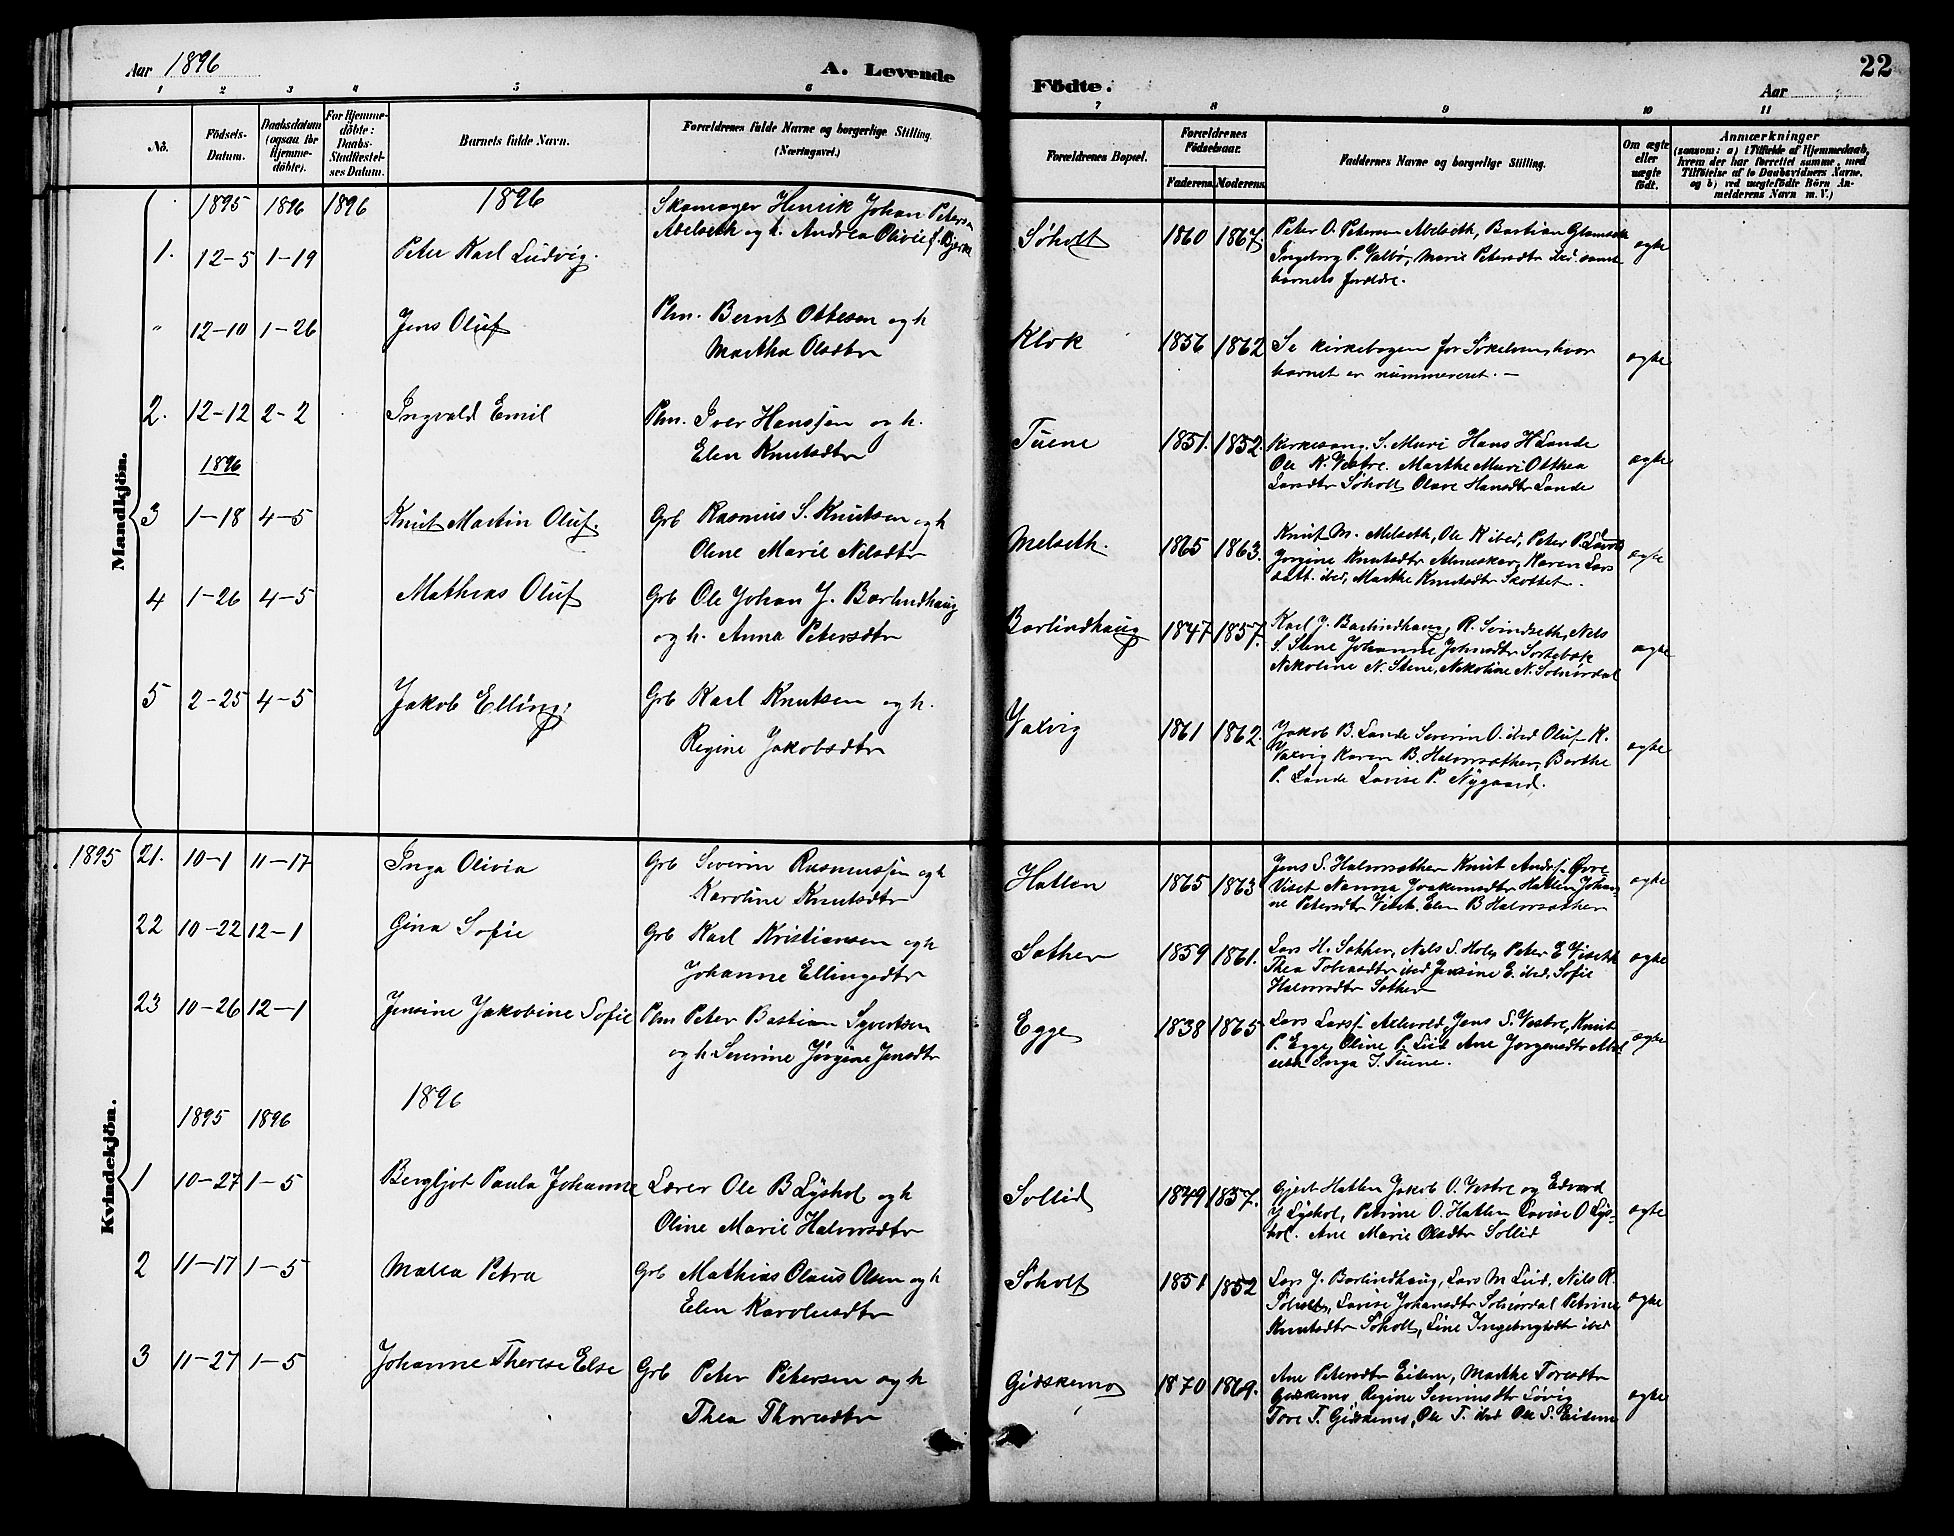 Aar 1896
A. Levende
Födte.
Aar
22
1 2 3 4 5 6 7 8 9 10 11
Nö.
Födsels-
Datum.
Daabsdatum
(ogsaa for
Hjemme-
döbte).
For Hjemme-
döbte:
Daabs-
Stadfæstel-
ses Datum.
Barnets fulde Navn.
Forældrenes fulde Navne og borgerlige Stilling.
(Næringsvei.)
Forældrenes Bopæl.
Forældrenes
Födselsaar.
Faderens. Moderens.
Faddernes Navne og borgerlige Stilling.
Om ægte
eller
uægte
födt.
Anmærkninger
(saasom: a) i Tilfælde af Hjemmedaab,
hvem der har forrettet samme, med
Tilföielse af to Daabsvidners Navne.
og b) ved uægtefödte Börn An-
melderens Navn m. V.)
Mandkjön.
1895 1896 1896 1896
1. 12-5 1-19 Peter Karl Ludvig.
Skomager Henrik Johan Petersen
Abelseth og h. Andrea Olivie
Søholt 1860 1867.
Peter O. Petersen Abelseth, Bastian
Ingeborg P. Valbø, Marie Petersdtr ibd. samt
barnets foreldre.
ægte
" 12-10 1-26 Jens Oluf
Plm. Bernt Ottesen og h
Martha Olsdtr
Klok 1856 1862
Se kirkebogen for Sökelven, hvor
barnet er nummereret. -
ægte
2. 12-12 2-2 Ingvald Emil
Plm. Iver Hanssen og h.
Elen Knutsdtr
Tuene 1851. 1852.
Kirkesang. S. Muri Hans H Lande
Ole K. Vestre. Marthe Muri Otthea
Larsdtr Søholt Olave Hansdtr Lande
ægte
1896
3 1-18 4-5 Knut Martin Oluf.
Grb Rasmus S. Knutsen og h
Oline Marie Nilsdtr
Melseth. 1865 1863.
Knut M. Melseth, Ole K ibed, Peter P.
Jørgine Knutsdtr Almeskar, Karen Lars
datt. ibed, Marthe Knutsdtr Skottet.
ægte
4 1-26 4-5 Mathias Oluf
Grb Ole Johan J. Barlindhaug
og h. Anna Petersdtr
Barlindhaug 1847 1857.
Karl J. Barlindhaug, R. Svindseth, Nels
S. Stene Johanne Johnsdtr Sortebak
Nikoline N. Stene, Nikoline N. Solnørdal
ægte
5 2-25 4-5 Jakob Elling.
Grb Karl Knutsen og h.
Regine Jakobsdtr
Valvig 1861 1862.
Jakob B. Lande Severin O. ibed Oluf K.
Valvig Karen B. Halvorsæther, Berthe
P. Lande Lovise P. Nygaard.
ægte
Kvindekjön.
1895 21. 10-1 11-17 Inga Olivia
Grb Severin Rasmussen og h
Karoline Knutsdtr
Hatlen 1865 1863
Jens S. Halvorsæther Knut Andrs. Øvre
Viset Nanna Joakimsdtr Hatlen Johan-
ne Petersdtr Viset. Elen B Halvorsæther
ægte
22 10-22 12-1 Gina Sofie
Grb Karl Kristiansen og h
Johanne Ellingsdtr
Sæther 1859 1861.
Lars H. Sæther, Nils S. Hole, Peter E Viseth
Thea Tobiasdtr ibed Jensine E. ibed, Sofie
Halvorsdtr Sæther
ægte
23 10-26 12-1 Jensine Jakobine Sofie
Plm Peter Bastian Syvertsen
og h. Severine Jørgine Jensdtr
Egge 1838 1865.
Lars Larss. Aelvold, Jens S. Vestre, Knut
P. Egge, Oline P. Lid Ane Jørgensdtr Abel
seth Inga I. Tuene.
ægte
1895 1896 1896
1 10-27 1-5 Bergljot Paula Johanne
Lærer Ole B Lyshol og h
Oline Marie Halvorsdtr
Sollid 1849 1857.
Gjert Hatlen Jakob O. Vestre og Edvard
J Lyshol, Petrine O. Hatlen Lovise O Lys-
hol. Ane Marie Olsdtr Sollid
ægte
2 11-17 1-5 Malla Petra
Grb Mathias Olaus Olsen og h
Elen Karolusdtr
Søholt 1851 1852
Lars J. Barlindhaug, Lars M Lid, Nils R.
Søholt, Lovise Johansdtr Solnørdal Petrine
Knutsdtr Søholt, Line Ingebrigtsdtr ibed
ægte
3 11-27 1-5 Johanne Therese Else
Grb Peter Petersen og h
Thea Thoresdtr
Gidskemo 1870 1869.
Ane Petersdtr Eidem, Marthe Toresdtr
Gidskemo Regine Severinsdtr Løvig
Tore T. Gidskemo, Ole T. ibed Ole S. Eidem
ægte